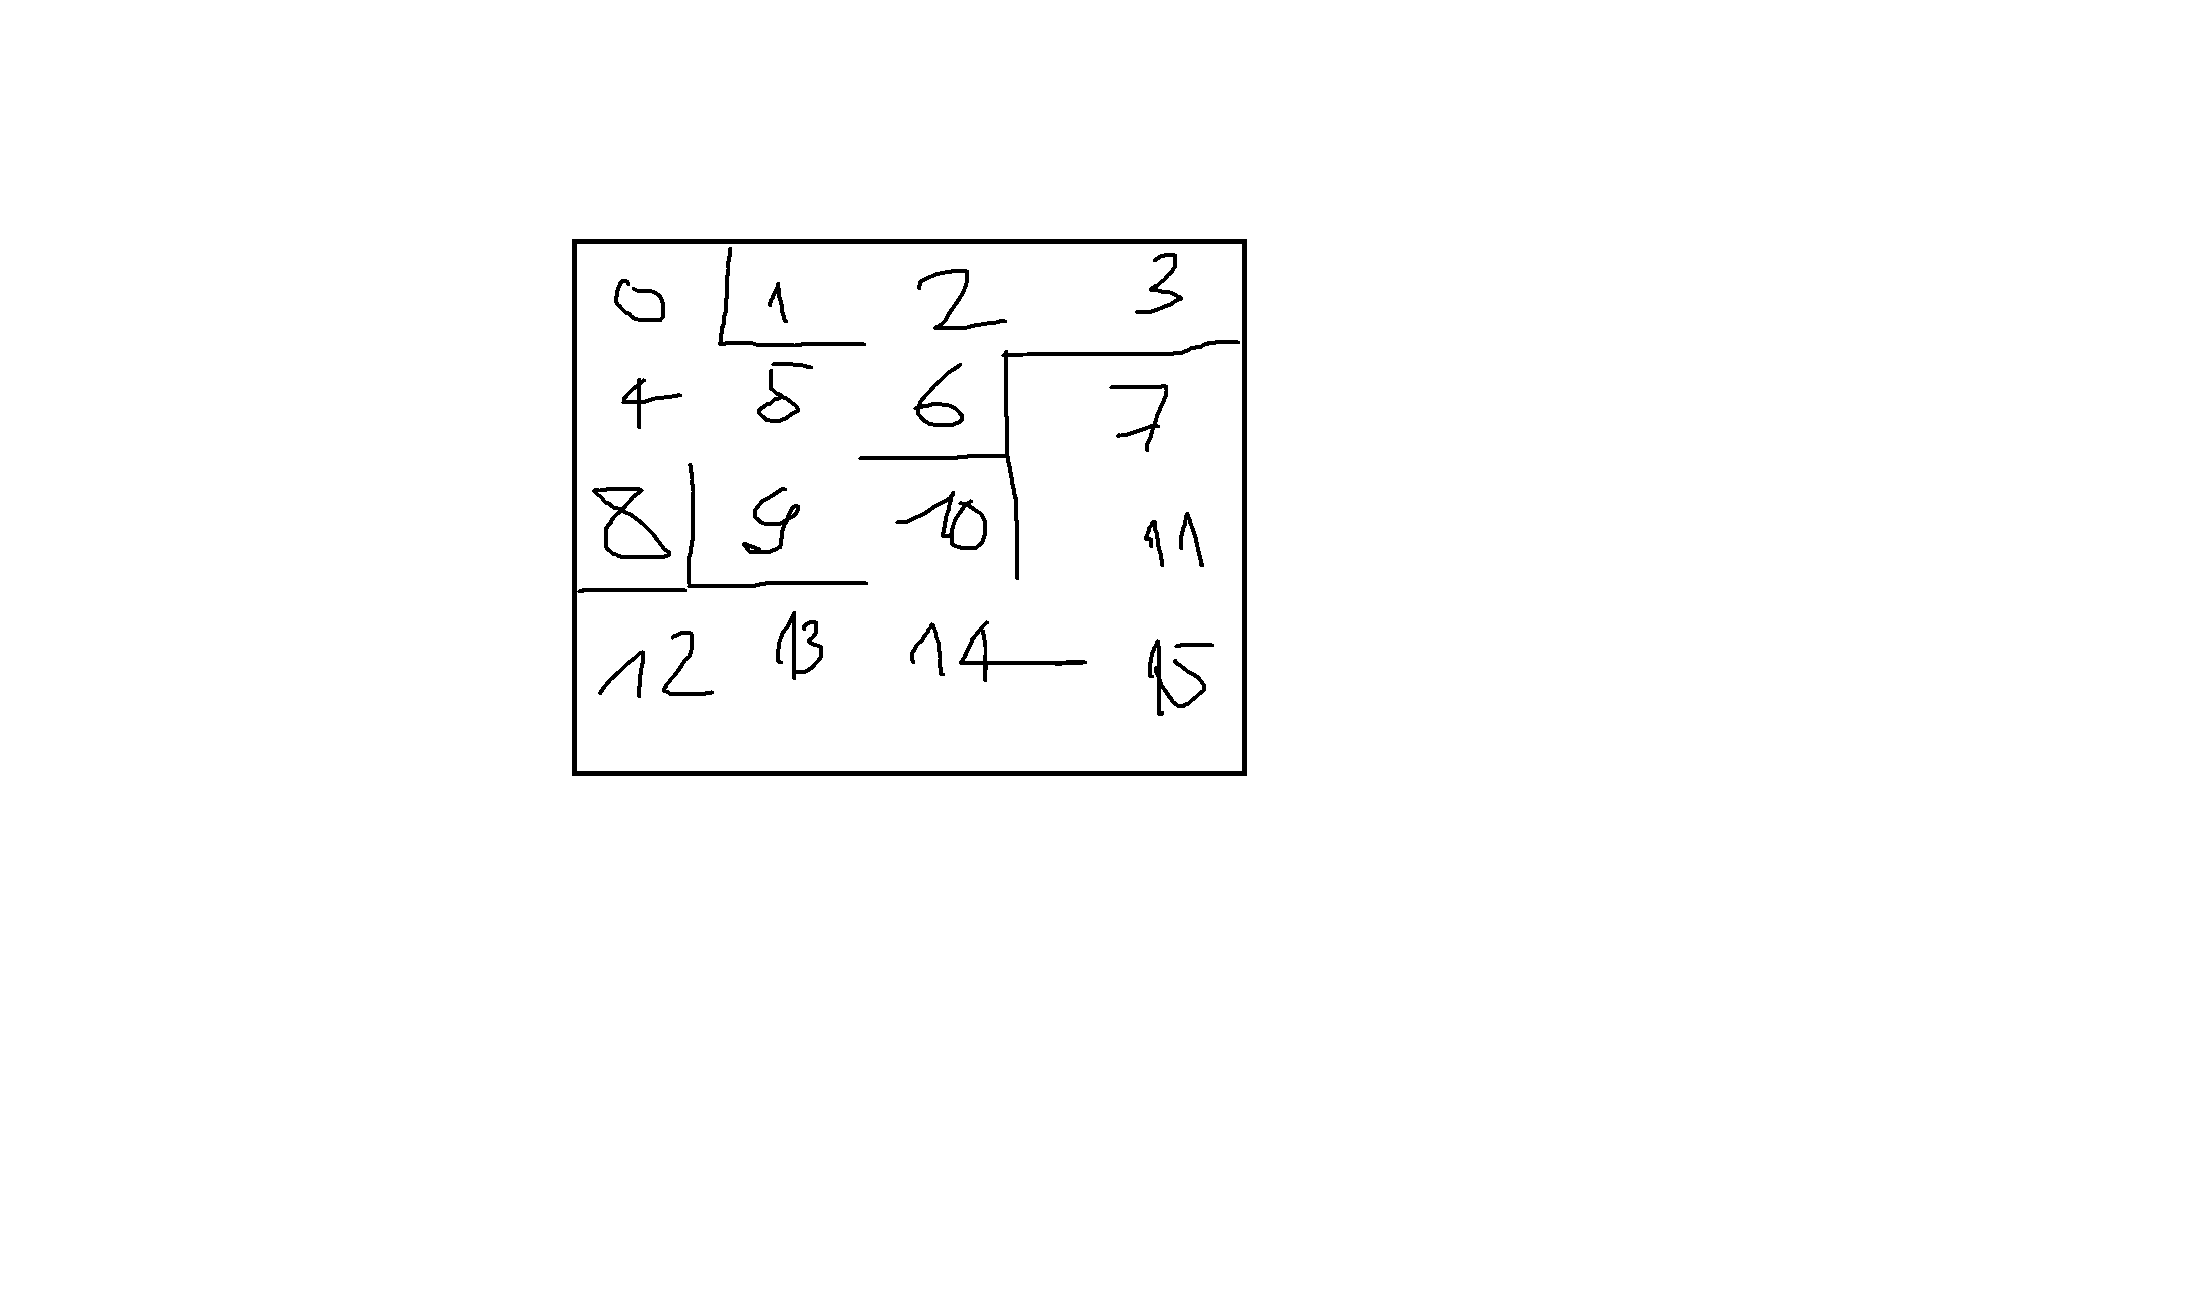 0 1 2 3
4 5 6 7
8 9 10 11
12 13 14 15